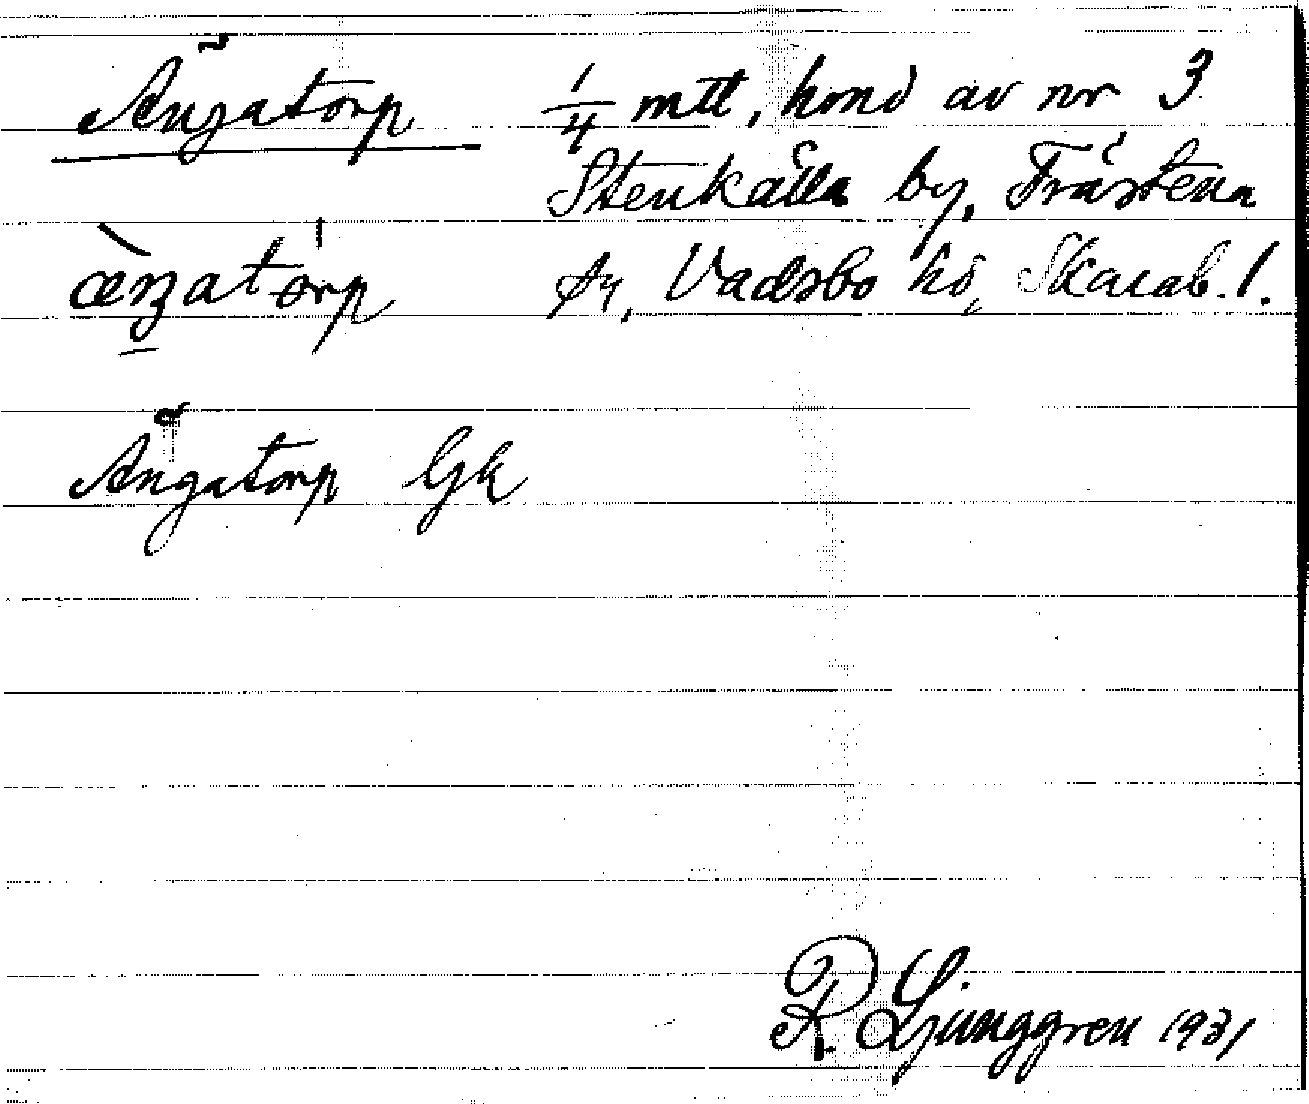 Ängatorp 1/4 mtl, hmd av nr 3
Stenkälla by, Fråstena
sn, Vadsbo hd, Skarab. l.
Ängatorp Gk
R. Ljunggren 1931